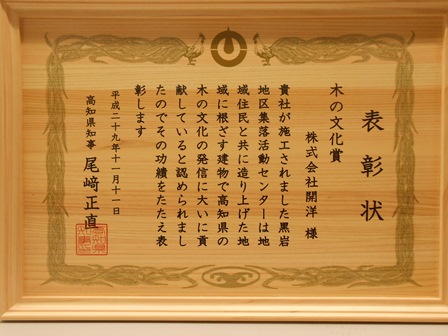 表彰状
木の文化賞
株式会社開洋 様
貴社が施工されました黒岩
地区集落活動センターは地
域住民と共に造り上げた地
域に根ざす建物で高知県の
木の文化の発信に大いに貢
献していると認められまし
たのでその功績をたたえ表
彰します
平成二十九年十一月十一日
高知県知事 尾﨑正直